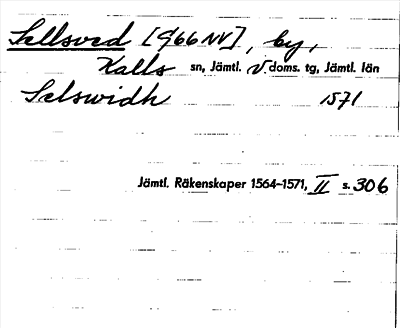 Sellsved [966 NV], by,
Kalls sn, Jämtl. V. doms. tg, Jämtl. län
Selswidh 1571
Jämtl. Räkenskaper 1564–1571, II s. 306